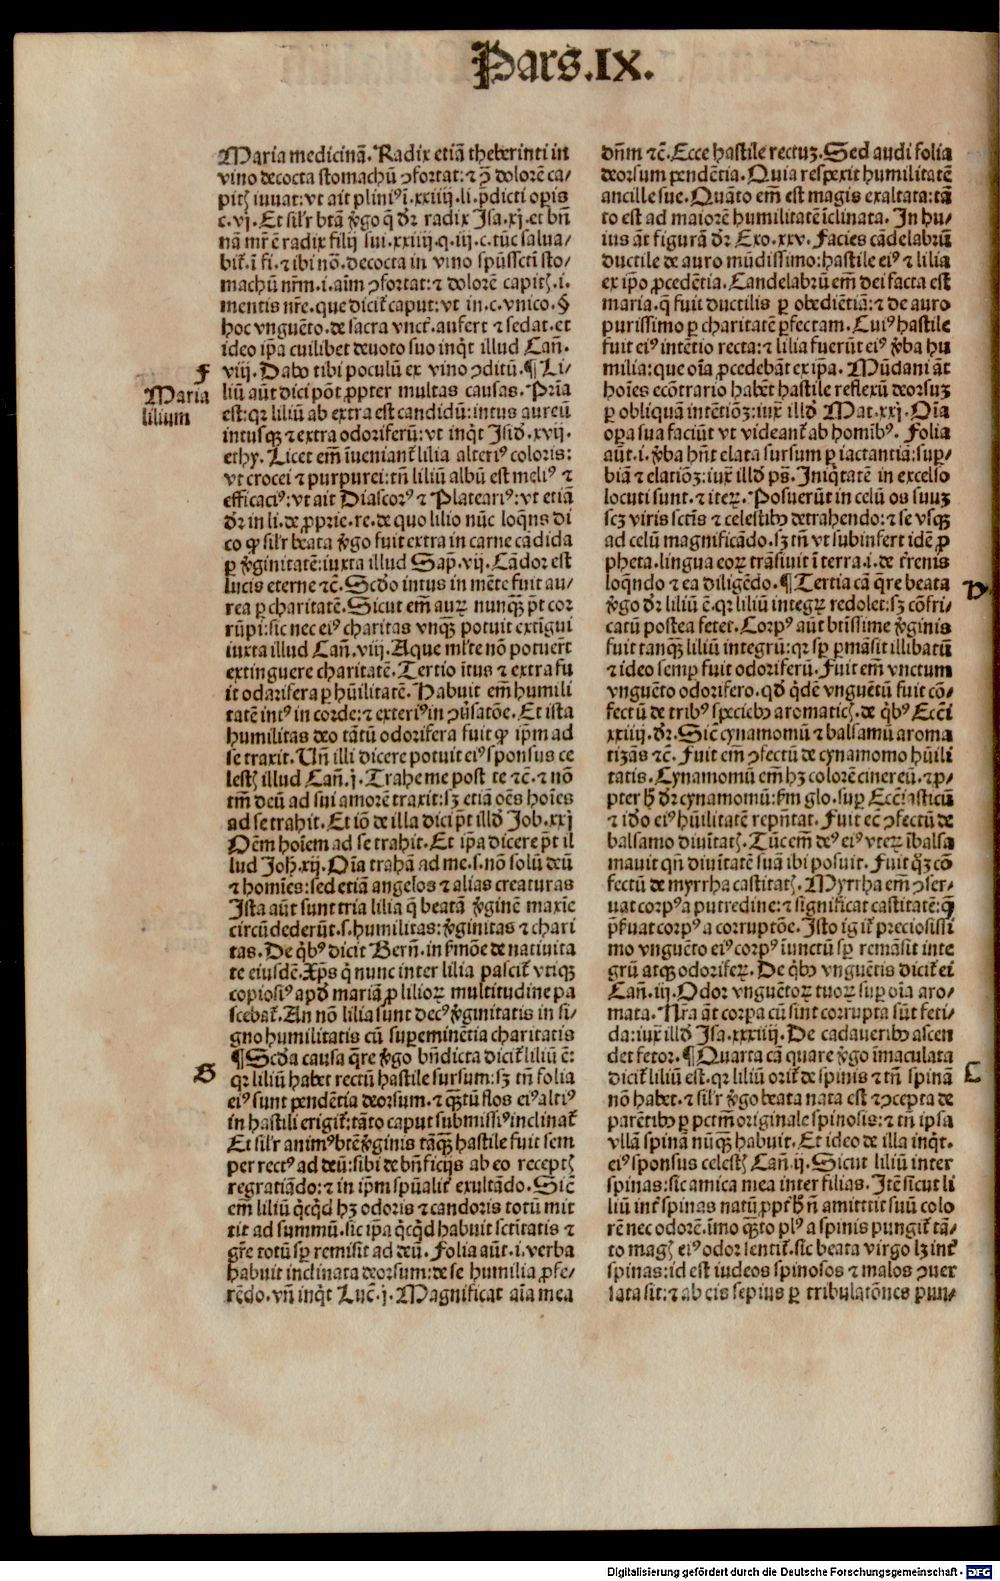 Pars.IX.
Maria medicinā. Radix etiā theberinti in
vino decocta stomachū ꝯfortat: ⁊ ꝯ̄ dolorē ca-
pitꝭ iuuat: vt ait pliniꝰ ī. xxiiij. li. p̄dicti opis
c. vj. Et sil'r btā v̓go q̄ dr̄ radix Isa. xj. et bn̄
nā mr̄ ē radix filij sui. xxiiij. q. iij. c. tūc salua/
bit̄. ī fi. ⁊ ibi nō. decocta in vino spūssctī sto-
machū nr̄m. i. aīm ꝯfortat: ⁊ dolorē capitꝭ. i.
mentis nr̄e. que dicit̄ caput: vt in. c. vnico. §
hoc vnguēto. de sacra vnct̄. aufert ⁊ sedat. et
ideo ip̄a cuilibet deuoto suo inq̇t illud Cañ.
F
viij. Dabo tibi poculū ex vino ꝯditū. ¶ Li-
Maria
lilium
liū aūt dici pōt ꝓpter multas causas. Prīa
est: qꝛ liliū ab extra est candidū: intus aureū
intusqꝫ ⁊ extra odoriferū: vt inq̇t Isid̄. xvij.
ethy. Licet em̄ īueniant̄ lilia alteriꝰ coloris:
vt crocei ⁊ purpurei: tn̄ liliū albū est meliꝰ ⁊
efficaciꝰ: vt ait Diascorꝰ ⁊ Plateariꝰ: vt etiā
dr̄ in li. de ꝓprie. re. de quo lilio nūc loq̄ns di
co ꝙ sil'r beata v̓go fuit extra in carne cādida
ꝑ v̓ginitatē: iuxta illud Sap̄. vij. Cādor est
lucis eterne ⁊c̄. Scd̄o intus in mēte fuit au-
rea ꝑ charitatē. Sicut em̄ auꝝ nunqꝫ̄ pt̄ cor
rūpi: sic nec eiꝰ charitas vnqꝫ̄ potuit extīgui
iuxta illud Cañ. viij. Aque ml'te nō potuert̄
extinguere charitatē. Tertio ītus ⁊ extra fu
it odarifera ꝑ hūilitatē. Habuit em̄ humili
tatē intꝰ in corde: ⁊ exteriꝰ in ꝯu̓satōe. Et ista
humilitas deo tātū odorifera fuit ꝙ ip̄m ad
se traxit. Un̄ illi dicere potuit eiꝰ sponsus ce
lestꝭ illud Cañ. j. Trahe me post te ⁊c̄. ⁊ nō
tm̄ deū ad sui amorē traxit: sꝫ etiā oēs hoīes
ad se trahit. Et iō de illa dici pt̄ illd̄ Job. xxj
Oēm hoīem ad se trahit. Et ip̄a dicere pt̄ il
lud Joh̄. xij. Oīa trahā ad me. s. nō solū deū
⁊ homīes: sed etiā angelos ⁊ alias creaturas
Ista aūt sunt tria lilia q̄ beatā v̓ginē maxīe
circūdederūt. s. humilitas: v̓ginitas ⁊ chari
tas. De q̇bꝰ dicit Berñ. in ẜmōe de natiuita
te eiusdē. Xp̄s q̇ nunc inter lilia pascit̄ vtiqꝫ
copiosiꝰ apd̄ mariā ꝓ lilioꝝ multitudine pa
scebat̄. An nō lilia sunt decꝰ v̓ginitatis in si-
gno humilitatis cū supeminētia charitatis
¶ Scd̄a causa q̄re v̓go bn̄dicta dicit̄ liliū ē:
G
qꝛ liliū habet rectū hastile sursum: sꝫ tn̄ folia
eiꝰ sunt pendētia deorsum. ⁊ qꝫ̄tū flos eiꝰ altiꝰ
in hastili erigit̄: tāto caput submissiꝰ inclinat̄
Et sil'r animꝰ btē v̓ginis tāqꝫ̄ hastile fuit sem
per rectꝰ ad deū: sibi de bn̄ficijs ab eo receptꝭ
regratiādo: ⁊ in ip̄m spūalit̄ exultādo. Sic̄
em̄ liliū q̇cq̇d hꝫ odoris ⁊ candoris totū mit
tit ad summū. sic ip̄a q̇cq̇d habuit sctītatis ⁊
gr̄e totū sp̄ remisit ad deū. Folia aūt. i. verba
habuit inclinata deorsum: de se humilia ꝓfe-
rēdo. vn̄ inq̇t Luc̄. j. Magnificat aīa mea
dn̄m ⁊c̄. Ecce hastile rectuꝫ. Sed audi folia
deorsum pendētia. Quia respexit humilitatē
ancille sue. Quāto em̄ est magis exaltata: tā
to est ad maiorē humilitatē īclinata. In hu-
ius āt figurā dr̄ Exo. xxv. Facies cādelabrū
ductile de auro mūdissimo: hastile eiꝰ ⁊ lilia
ex ip̄o ꝓcedētia. Candelabrū em̄ dei facta est
maria. q̄ fuit ductilis ꝑ obediētiā: ⁊ de auro
purissimo ꝑ charitatē ꝑfectam. Cuiꝰ hastile
fuit eiꝰ intētio recta: ⁊ lilia fuerūt eiꝰ v̓ba hu
milia: que oīa ꝓcedebāt ex ip̄a. Mūdani āt
hoīes ecōtrario habēt hastile reflexū deorsuꝫ
ꝑ obliquā intētiōꝫ: iux̄ illd̄ Mat. xxj. Oīa
opa sua faciūt vt videant̄ ab homībꝰ. Folia
aūt. i. v̓ba hn̄t elata sursum ꝑ iactantiā: sup̄-
biā ⁊ elatiōꝫ: iux̄ illd̄ ps̄. Iniq̇tatē in excelso
locuti sunt. ⁊ iteꝝ. Posuerūt in celū os suuꝫ
scꝫ viris sctīs ⁊ celestibꝰ detrahendo: ⁊ se vsqꝫ
ad celū magnificādo. sꝫ tn̄ vt subinfert idē ꝓ
pheta. lingua eoꝝ trāsiuit ī terra. i. de tr̄enis
loq̄ndo ⁊ ea diligēdo. ¶ Tertia cā q̄re beata
D
v̓go dr̄ liliū ē. qꝛ liliū integꝝ redolet: sꝫ cōfri-
catū postea fetet. Corpꝰ aūt btīssime v̓ginis
fuit tanqꝫ̄ liliū integrū: qꝛ sp̄ ꝑmāsit illibatū
⁊ ideo semꝑ fuit odoriferū. Fuit em̄ vnctum
vnguēto odorifero. qd̄ q̇dē vnguētū fuit cō-
fectū de tribꝰ speciebꝰ aromaticꝭ. de q̇bꝰ Ecc̄i
xxiiij. dr̄. Sic̄ cynamomū ⁊ balsamū aroma
tizās ⁊c̄. Fuit em̄ ꝯfectū de cynamomo hūili
tatis. Cynamomū em̄ hꝫ colorē cinereū. ⁊ ꝓ-
pter h̄ dr̄ cynamomū: ẜm glo. sup Ecc̄iasticū
⁊ id̄o eiꝰ hūilitatē rep̄ntat. Fuit ec̄ ꝯfectū de
balsamo diuītatꝭ. Tūc em̄ deꝰ eiꝰ vteꝝ ībalsa
mauit qn̄ diuītatē suā ibi posuit. Fuit q̇ꝫ cō
fectū de myrrha castitatꝭ. Myrrha em̄ ꝯser-
uat corpꝰ a putredine: ⁊ significat castitatē: q̄
p̄ẜuat corpꝰ a corruptōe. Isto īgit̄ preciosissi
mo vnguēto eiꝰ corpꝰ iunctū sp̄ remāsit inte
grū atqꝫ odorifeꝝ. De q̇bꝰ vnguētis dicit̄ ei
Cañ. iij. Odor vnguētoꝝ tuoꝝ sup oīa aro-
mata. Nr̄a āt corpa cū sint corrupta sūt feti-
da: iux̄ illd̄ Isa. xxxiiij. De cadaueribꝰ ascen
det fetor. ¶ Quarta cā quare v̓go īmaculata
C
dicit̄ liliū est. qꝛ liliū orit̄ de spinis ⁊ tn̄ spinā
nō habet. ⁊ sil'r v̓go beata nata est ⁊ ꝯcepta de
parētibꝰ ꝑ pctm̄ originale spinosis: ⁊ tn̄ ipsa
vllā spinā nūqꝫ̄ habuit. Et ideo de illa inq̇t.
eiꝰ sponsus celestꝭ Cañ. ij. Sicut liliū inter
spinas: sic amica mea inter filias. Itē sicut li
liū int̄ spinas natū ꝓpt̄ h̄ n̄ amittit suū colo
rē nec odorē. īmo qꝫ̄to plꝰ a spinis pungit̄ tā-
to magꝭ eiꝰ odor sentit̄. sic beata virgo lꝫ int̄
spinas: id est iudeos spinosos ⁊ malos ꝯuer
sata sit: ⁊ ab eis sepius ꝑ tribulatōnes pun-
Digitalisierung gefördert durch die Deutsche Forschungsgemeinschaft - DFG